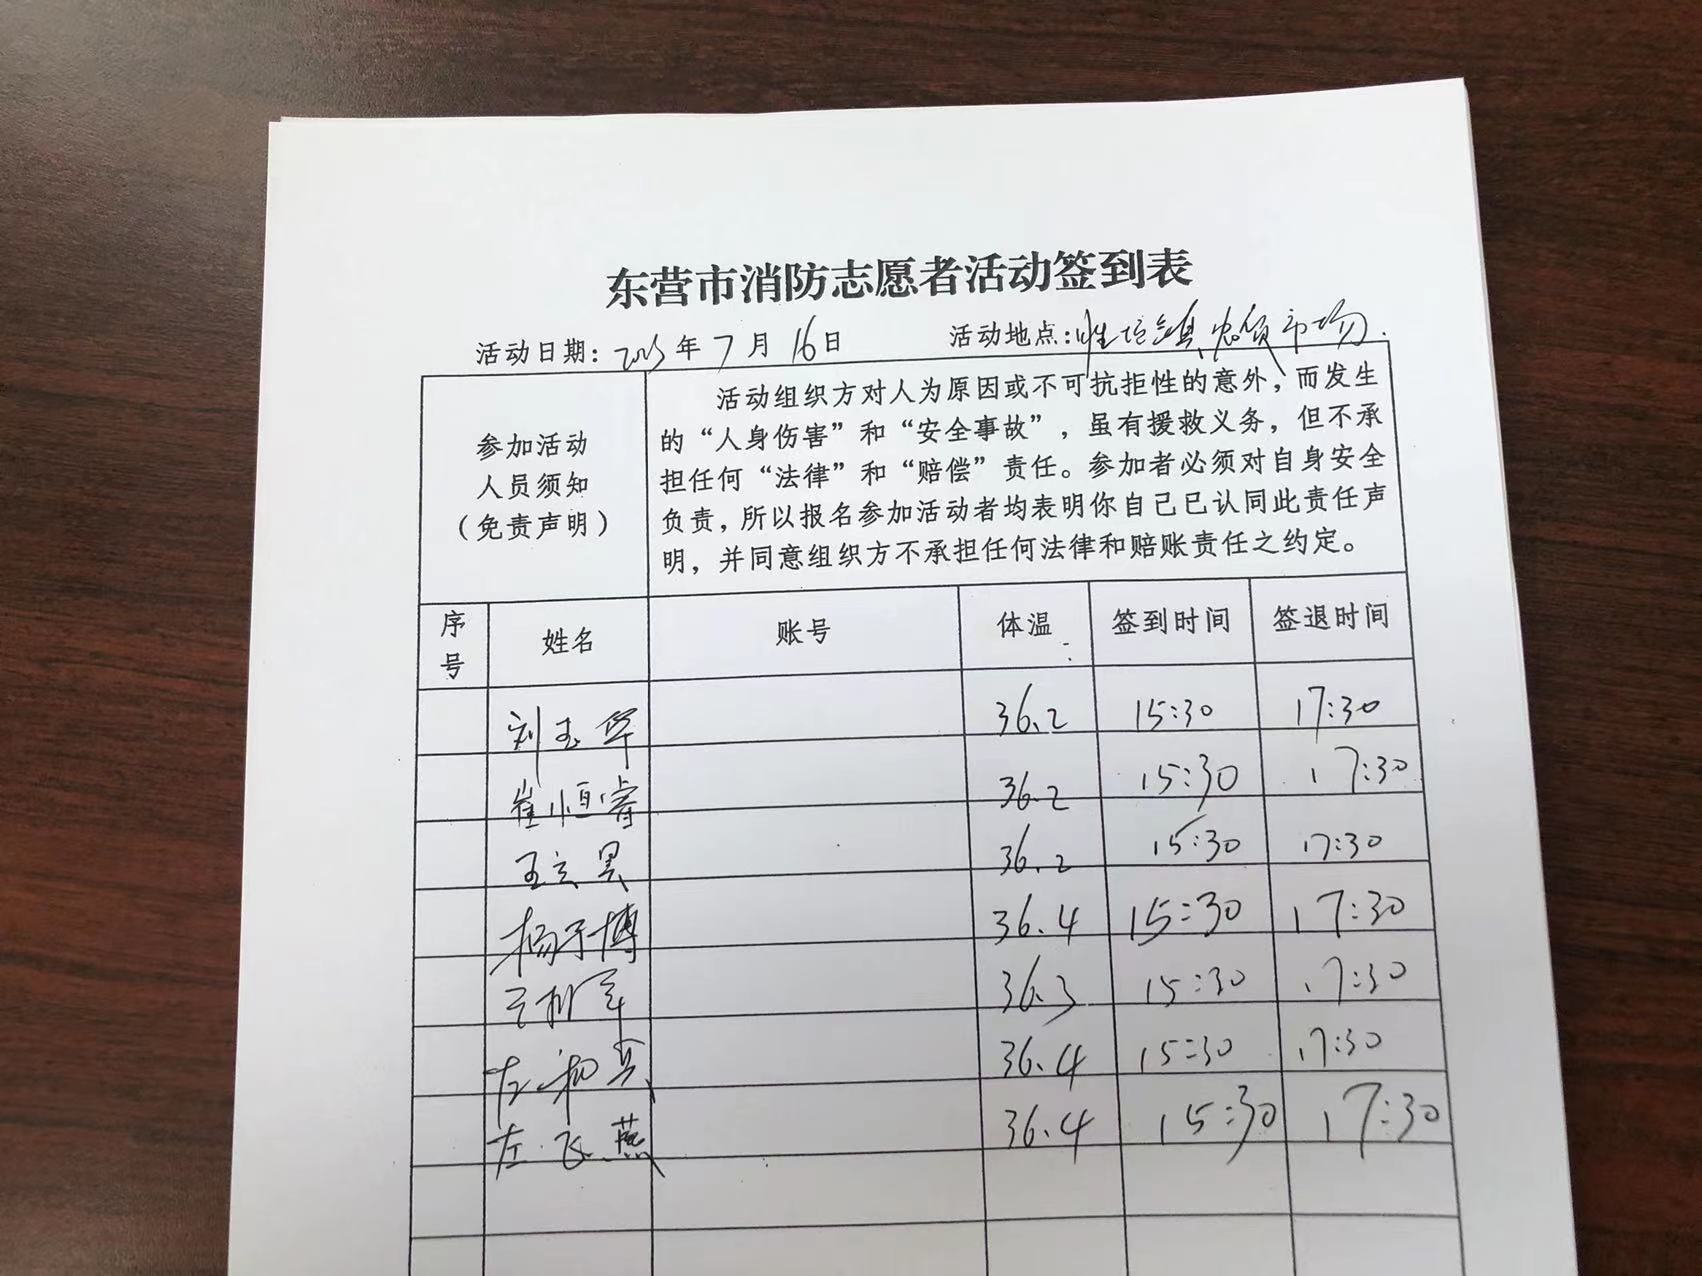 东营市消防志愿者活动签到表
活动日期: 2023年7月16日 活动地点: 市场
参加活动
人员须知
(免责声明)
活动组织方对人为原因或不可抗拒性的意外,而发生
的“人身伤害”和“安全事故”,虽有援救义务,但不承
担任何“法律”和“赔偿”责任。参加者必须对自身安全
负责,所以报名参加活动者均表明你自己已认同此责任声
明,并同意组织方不承担任何法律和赔账责任之约定。
序号 姓名 账号 体温 签到时间 签退时间
刘玉华 36.2 15:30 17:30
崔恒睿 36.2 15:30 17:30
王立昊 36.2 15:30 17:30
杨子博 36.4 15:30 17:30
36.3 15:30 17:30
36.4 15:30 17:30
左飞燕 36.4 15:30 17:30